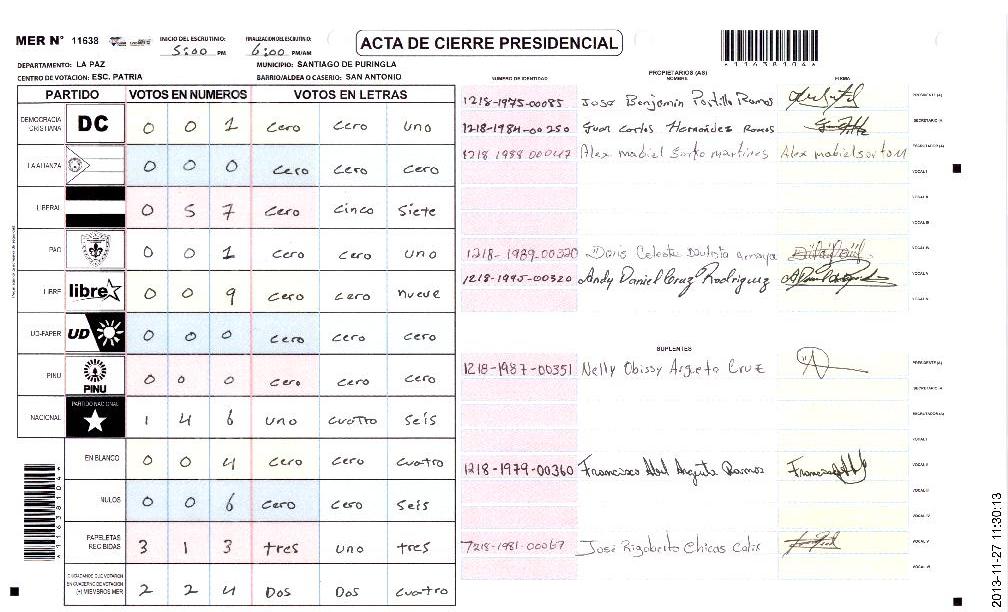 MER N° 11638 INICIO DEL ESCRUTINIO: 5:00 PM FINALIZACION DEL ESCRUTINIO: 6:00 PM/AM
ACTA DE CIERRE PRESIDENCIAL
*11638104*
DEPARTAMENTO: LA PAZ MUNICIPIO: SANTIAGO DE PURINGLA
CENTRO DE VOTACION: ESC. PATRIA BARRIO/ALDEA O CASERIO: SAN ANTONIO
PARTIDO VOTOS EN NUMEROS VOTOS EN LETRAS
DEMOCRACIA CRISTIANA DC 0 0 1 Cero Cero Uno
LA ALIANZA 0 0 0 Cero Cero Cero
LIBERAL 0 5 7 Cero Cinco Siete
PAC 0 0 1 Cero Cero Uno
LIBRE libre 0 0 9 Cero Cero nueve
UD-FAPER UD 0 0 0 Cero Cero Cero
PINU PINU 0 0 0 Cero Cero Cero
NACIONAL PARTIDO NACIONAL 1 4 6 Uno Cuatro Seis
EN BLANCO 0 0 4 Cero Cero Cuatro
NULOS 0 0 6 Cero Cero Seis
PAPELETAS RECIBIDAS 3 1 3 tres uno tres
CIUDADANOS QUE VOTARON EN CUADERNO DE VOTACION (+) MIEMBROS MER 2 2 4 Dos Dos Cuatro
*11638104*
PROPIETARIOS (AS)
NUMERO DE IDENTIDAD NOMBRE FIRMA
1218-1975-00085 Jose Benjamin Portillo Ramos PRESIDENTE (A)
1218-1984-00250 Juan Carlos Hernández Ramos SECRETARIO/A
1218 1988 00047 Alex mabiel Sorto martines Alex mabiel sorto M ESCRUTADOR (A)
VOCAL I
VOCAL II
VOCAL III
1218-1989-00320 Doris Celeste Bautista Amaya VOCAL IV
1218-1995-00320 Andy Daniel Cruz Rodriguez VOCAL V
VOCAL VI
SUPLENTES
1218-1987-00351 Nelly Obissy Argueta Cruz PRESIDENTE (A)
SECRETARIO/A
ESCRUTADOR (A)
VOCAL I
1218-1979-00360 Francisco Abel Argueta Ramos VOCAL II
VOCAL III
VOCAL IV
1218-1981-00067 José Rigoberto Chicas Calix VOCAL V
VOCAL VI
2013-11-27 11:30:13